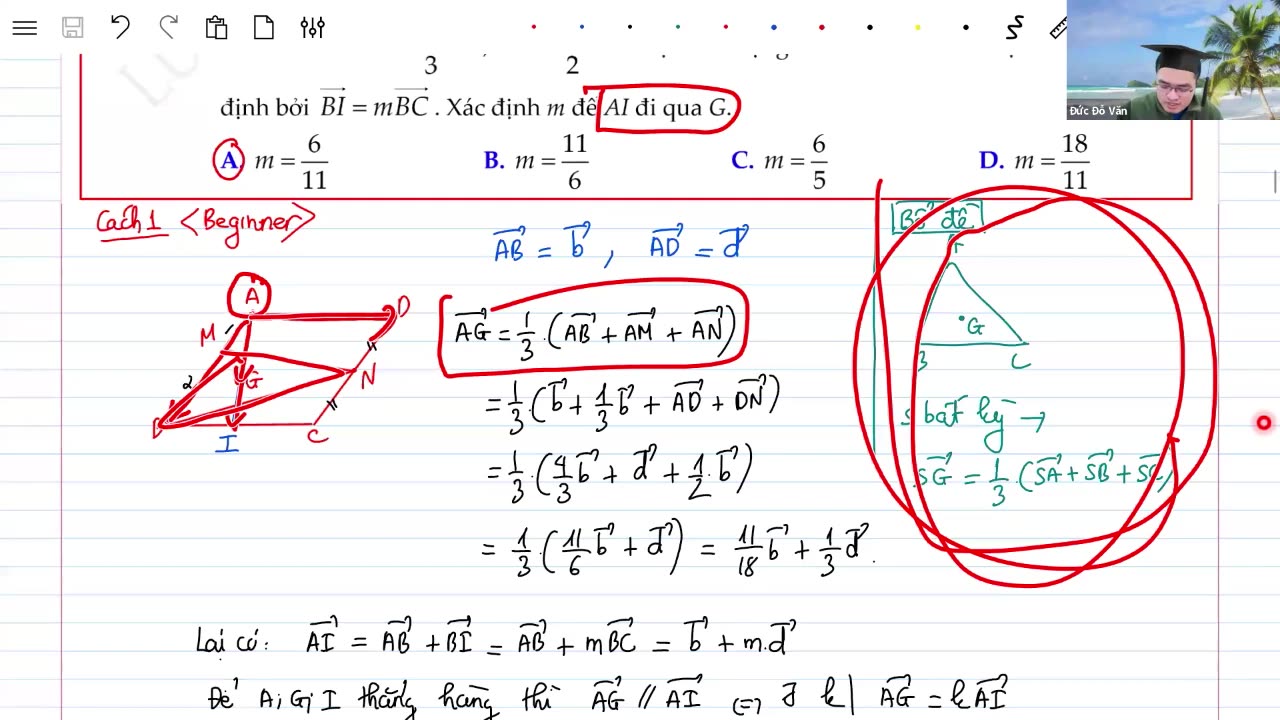 3 2
định bởi BI = mBC . Xác định m để AI đi qua G.
A. m = 6/11 B. m = 11/6 C. m = 6/5 D. m = 18/11
Đức Đỗ Văn
Cách 1 <Beginner>
AB = b , AD = d
Bổ đề
A D
M
2 G N
I C
AG = 1/3 . (AB + AM + AN)
= 1/3 . (b + 1/3 b + AD + DN)
= 1/3 . (4/3 b + d + 1/2 . b)
= 1/3 . (11/6 b + d) = 11/18 b + 1/3 d .
G
B C
S bất kỳ →
SG = 1/3 . (SA + SB + SC)
Lại có: AI = AB + BI = AB + mBC = b + m.d
Để A, G, I thẳng hàng thì AG // AI ⇔ ∃ k | AG = kAI